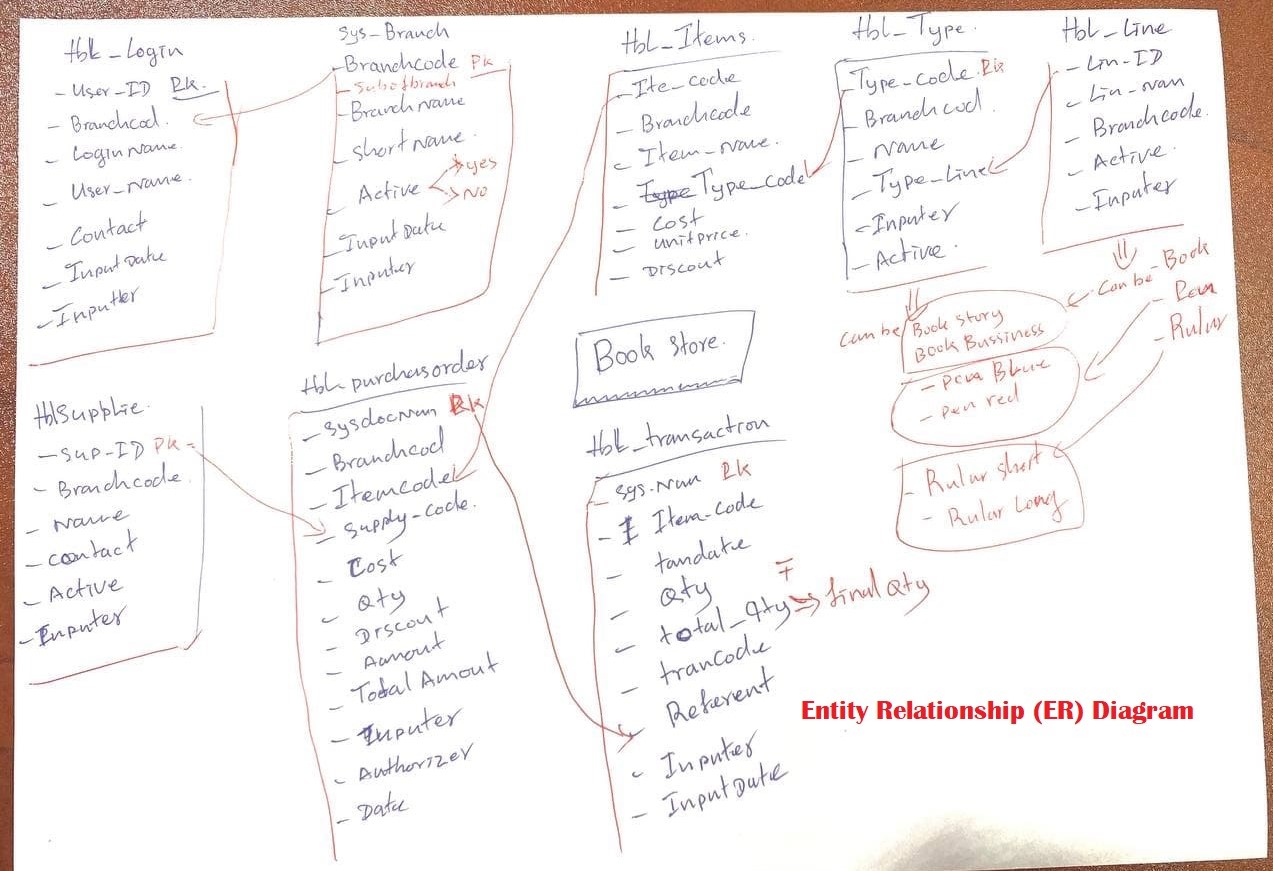 tbl_Login
- User-ID Pk.
- Branchcod.
- LoginName.
- User_Name.
- Contact
- InputDate
- Inputter
Sys_Branch
- Branchcode Pk
- Subofbranch
- BranchName
- Shortname.
- Active
Yes
No
- InputData
- Inputer
Tbl_Items.
- Ite_code
- Branchcode
- Item_Name.
- Type Type_Code
- Cost
- unitprice.
- Discout
Tbl_Type.
- Type_Code. Pk
- Branchcod.
- Name
- Type_Line
- Inputer
- Active.
Tbl_Line
- Lin-ID
- Lin-nam
- Branchcode.
- Active.
- Inputer
Can be
Book Story
Book Bussiness
- Pen Blue
- Pen red
- Rular short
- Rular Long
Can be - Book
- Pen
- Rular
Book Store.
tblSupplie.
- Sup-ID Pk -
- Branchcode.
- Name
- Contact
- Active
- Inputer
tbl_purchasorder
- SysdocNum Pk
- Branchcod
- Itemcode
- Supply-code.
- Cost
- Qty
- Discout
- Amout
- Total Amout
- Inputer
- Authorizer
- Date
tbl_transaction
- Sys.Num Pk
- Item-Code
- tandate
- Qty
- total_Qty F final Qty
- tranCode
- Referent
- Inputer
- InputDate
Entity Relationship (ER) Diagram